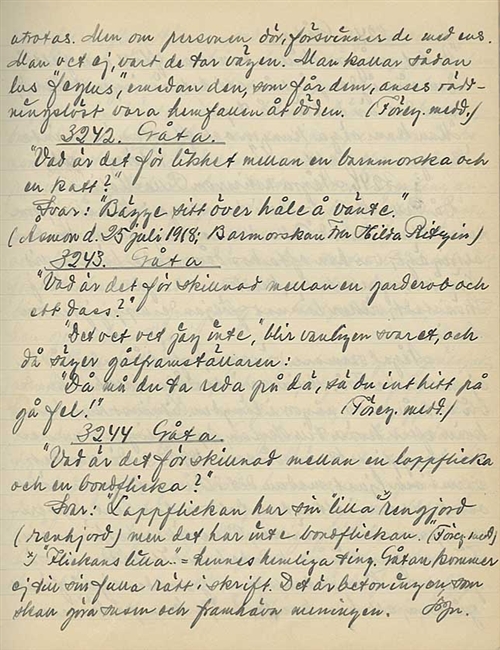 utrotas. Men om personen dör, försvinner de med ens.
Man vet ej, vart de tar vägen. Man kallar sådan
lus "feylus", emedan den, som får dem, anses rädd-
ningslöst vara hemfallen åt döden. (Föreg. medd.)
3242. Gåta.
"Vad är det för likhet mellan en barnmorska och
en katt?"
Svar: "Bägge sitt över håle å vänte."
(Åsmon d. 25 juli 1918; Barmorskan Fru Hilda
3243. Gåta
"Vad är det för skillnad mellan en garderob och
ett dass?"
"Det vet vet jäg inte," blir vanligen svaret, och
då säger gåtframställaren:
"Då må du ta reda på dä, så du int hitt på
gå fel!" (Föreg. medd.)
3244 Gåta.
"Vad är det för skillnad mellan en lappflicka
och en bondflicka?"
Svar: "Lappflickan har sin "lilla" x) rengjord
(renhjord) men det har inte bondflickan. (Föreg. medd)
x) "Flickans lilla" = hennes hemliga ting. Gåtan kommer
ej till sin fulla rätt i skrift. Det är betoningen som
skall göra susen och framhäva meningen.